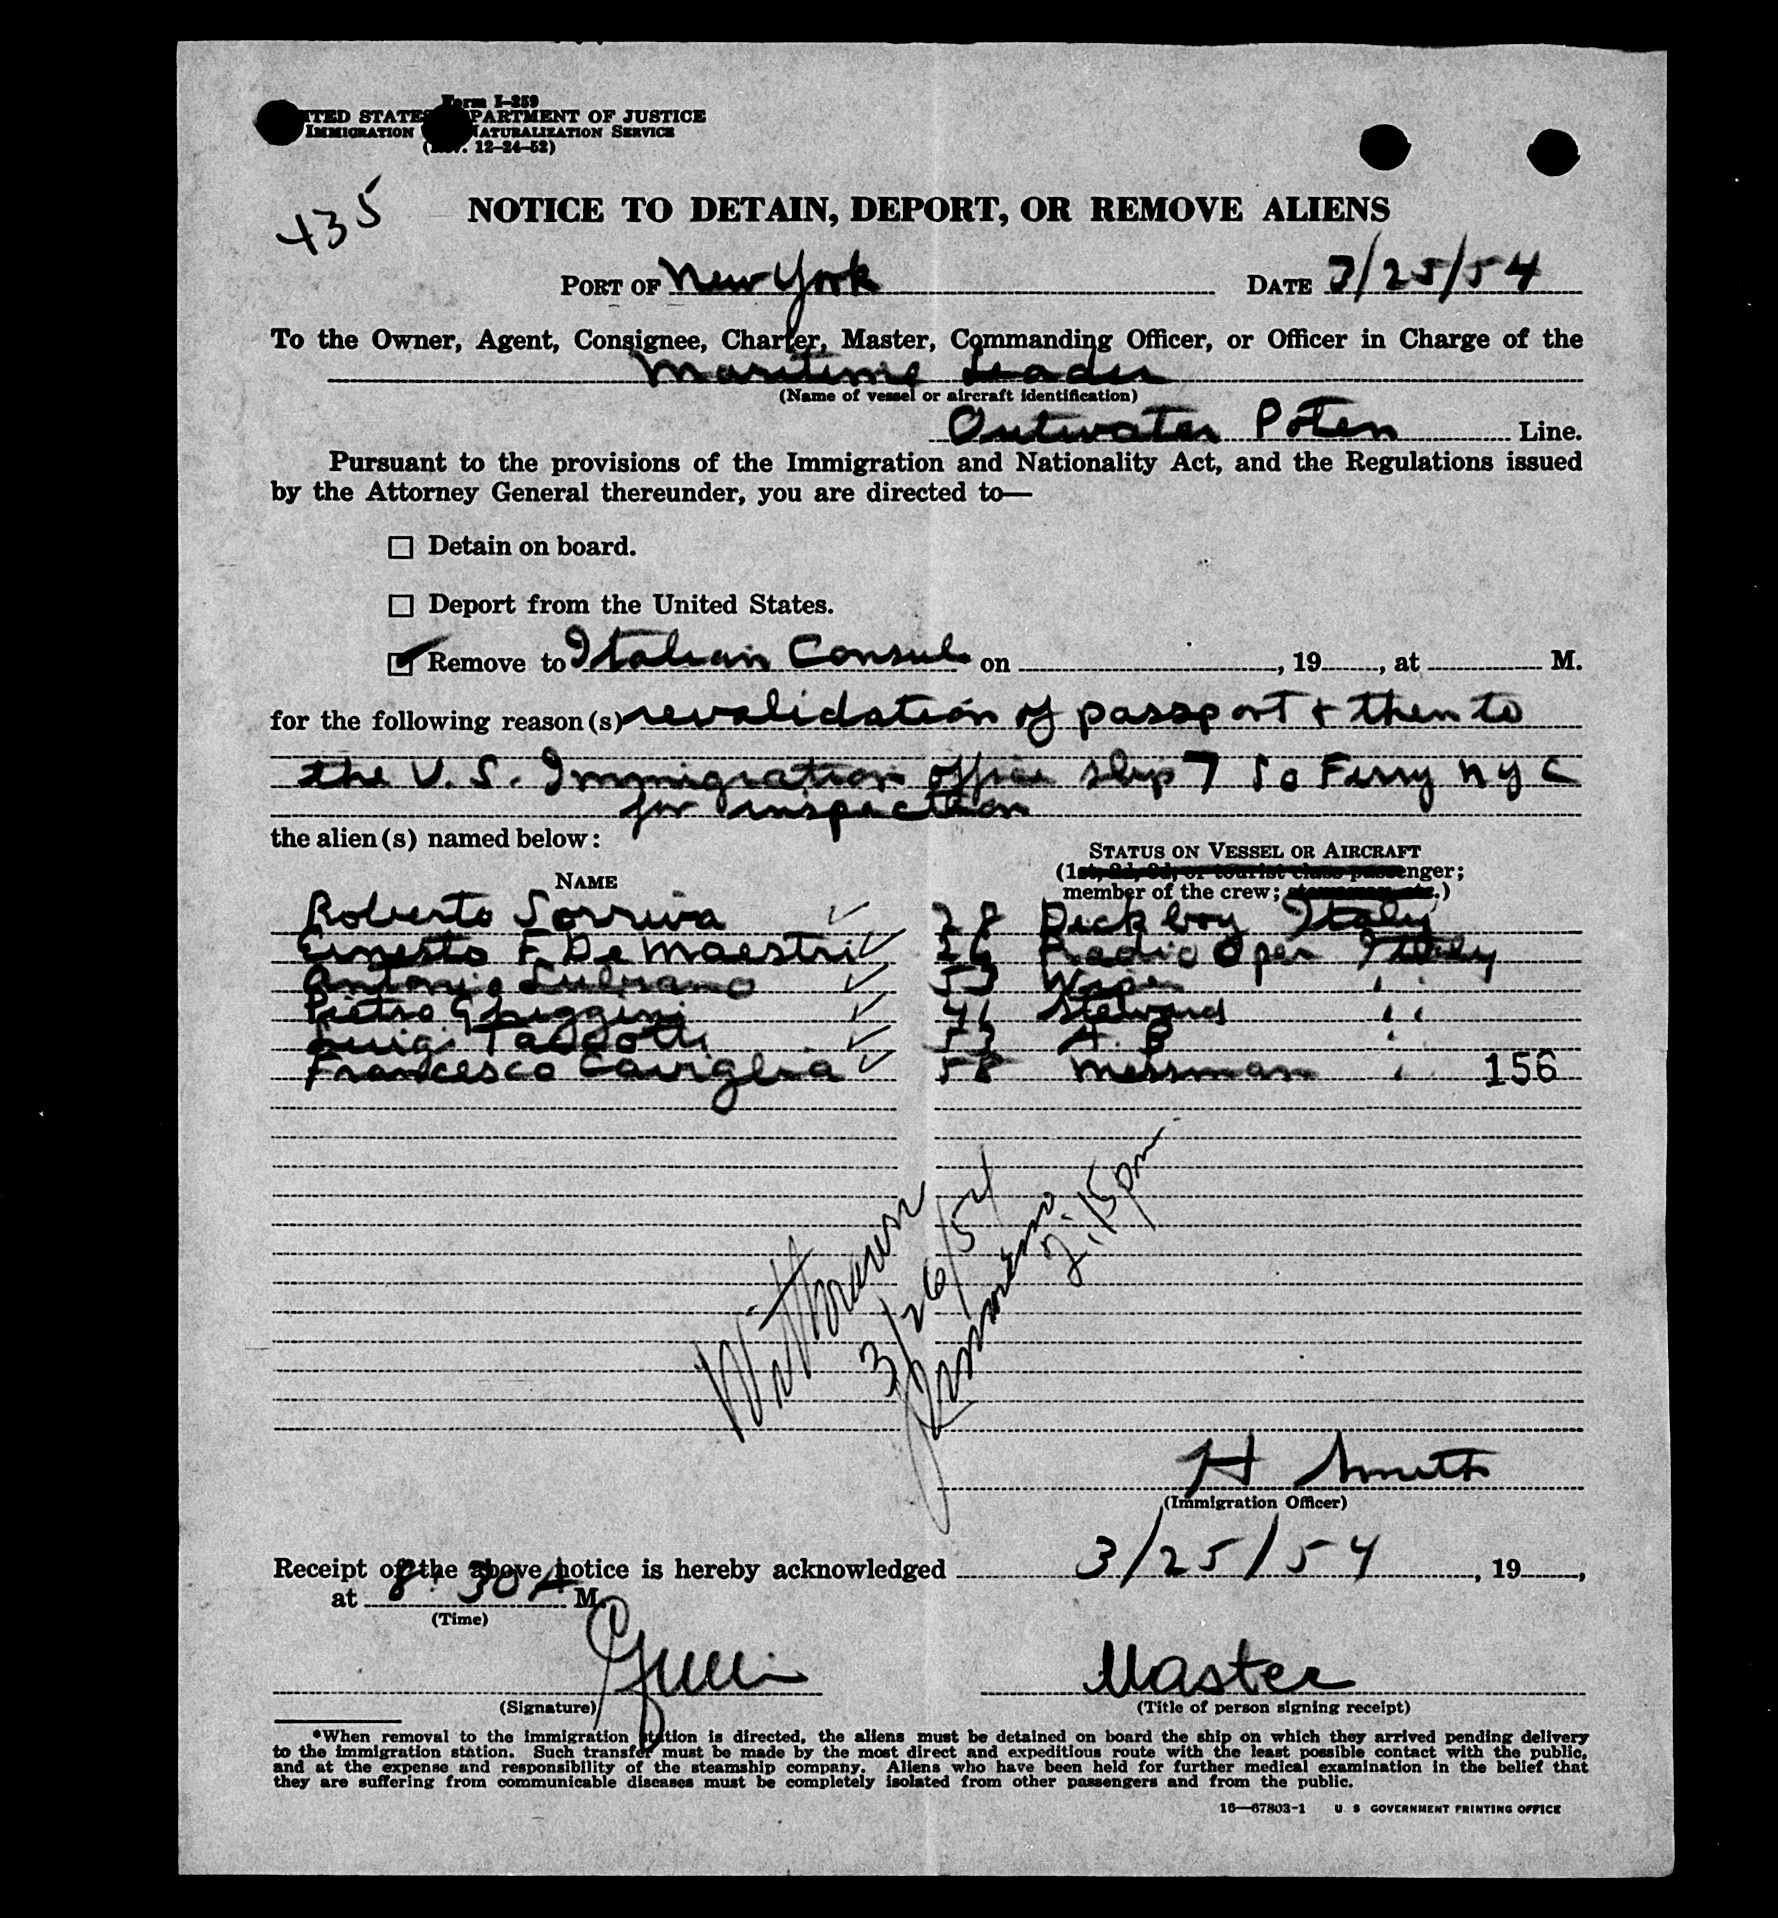 Form I-259
ITED STATES DEPARTMENT OF JUSTICE
IMMIGRATION NATURALIZATION SERVICE
( . 12-24-52)
435
NOTICE TO DETAIN, DEPORT, OR REMOVE ALIENS
PORT OF New York DATE 3/25/54
To the Owner, Agent, Consignee, Charter, Master, Commanding Officer, or Officer in Charge of the
Maritime Leader
(Name of vessel or aircraft identification)
Outwater Poten Line.
Pursuant to the provisions of the Immigration and Nationality Act, and the Regulations issued
by the Attorney General thereunder, you are directed to—
☐ Detain on board.
☐ Deport from the United States.
☑ Remove to Italian Consul on , 19 , at M.
for the following reason(s) revalidation of passport + then to
the U.S. Immigration office slip 7 So Ferry N Y C
for inspection
the alien(s) named below:
STATUS ON VESSEL OR AIRCRAFT
(1st, 2d, 3d, or tourist class passenger;
NAME
member of the crew; .)
Roberto ✓ 28 Deck boy Italy
Ernesto F. De Maestri ✓ 26 Radio Oper Italy
Antonio Lubrano ✓ 53 Wiper " "
Pietro Ghiggini ✓ 41 Steward " "
Luigi ✓ 53 A. B "
Francesco Caviglia ✓ 58 Messman " 156
Withdrawn
3/26/54
2:15 pm
H Smith
(Immigration Officer)
Receipt of the above notice is hereby acknowledged 3/25/54, 19 ,
at 8:30 A M.
(Time)
Master
(Signature) (Title of person signing receipt)
*When removal to the immigration station is directed, the aliens must be detained on board the ship on which they arrived pending delivery
to the immigration station. Such transfer must be made by the most direct and expeditious route with the least possible contact with the public,
and at the expense and responsibility of the steamship company. Aliens who have been held for further medical examination in the belief that
they are suffering from communicable diseases must be completely isolated from other passengers and from the public.
16—67803-1 U S GOVERNMENT PRINTING OFFICE